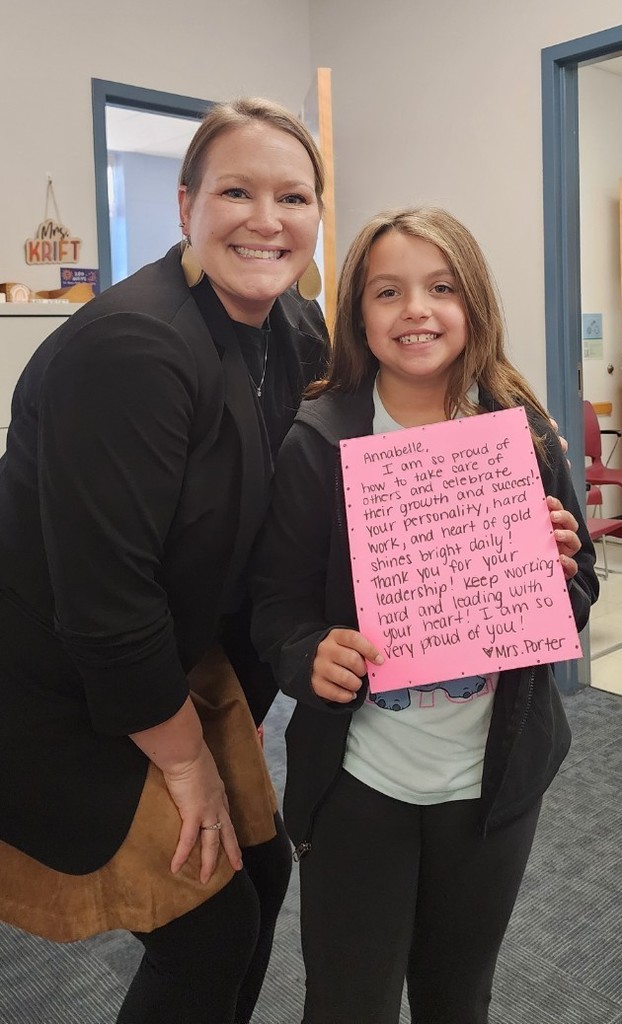 Mrs.
KRIFT
Annabelle,
I am so proud of
how to take care of
others and celebrate
their growth and success!
your personality, hard
work, and heart of gold
shines bright daily!
Thank you for your
leadership! Keep working
hard and leading with
your heart! I am so
very proud of you!
♥Mrs. Porter